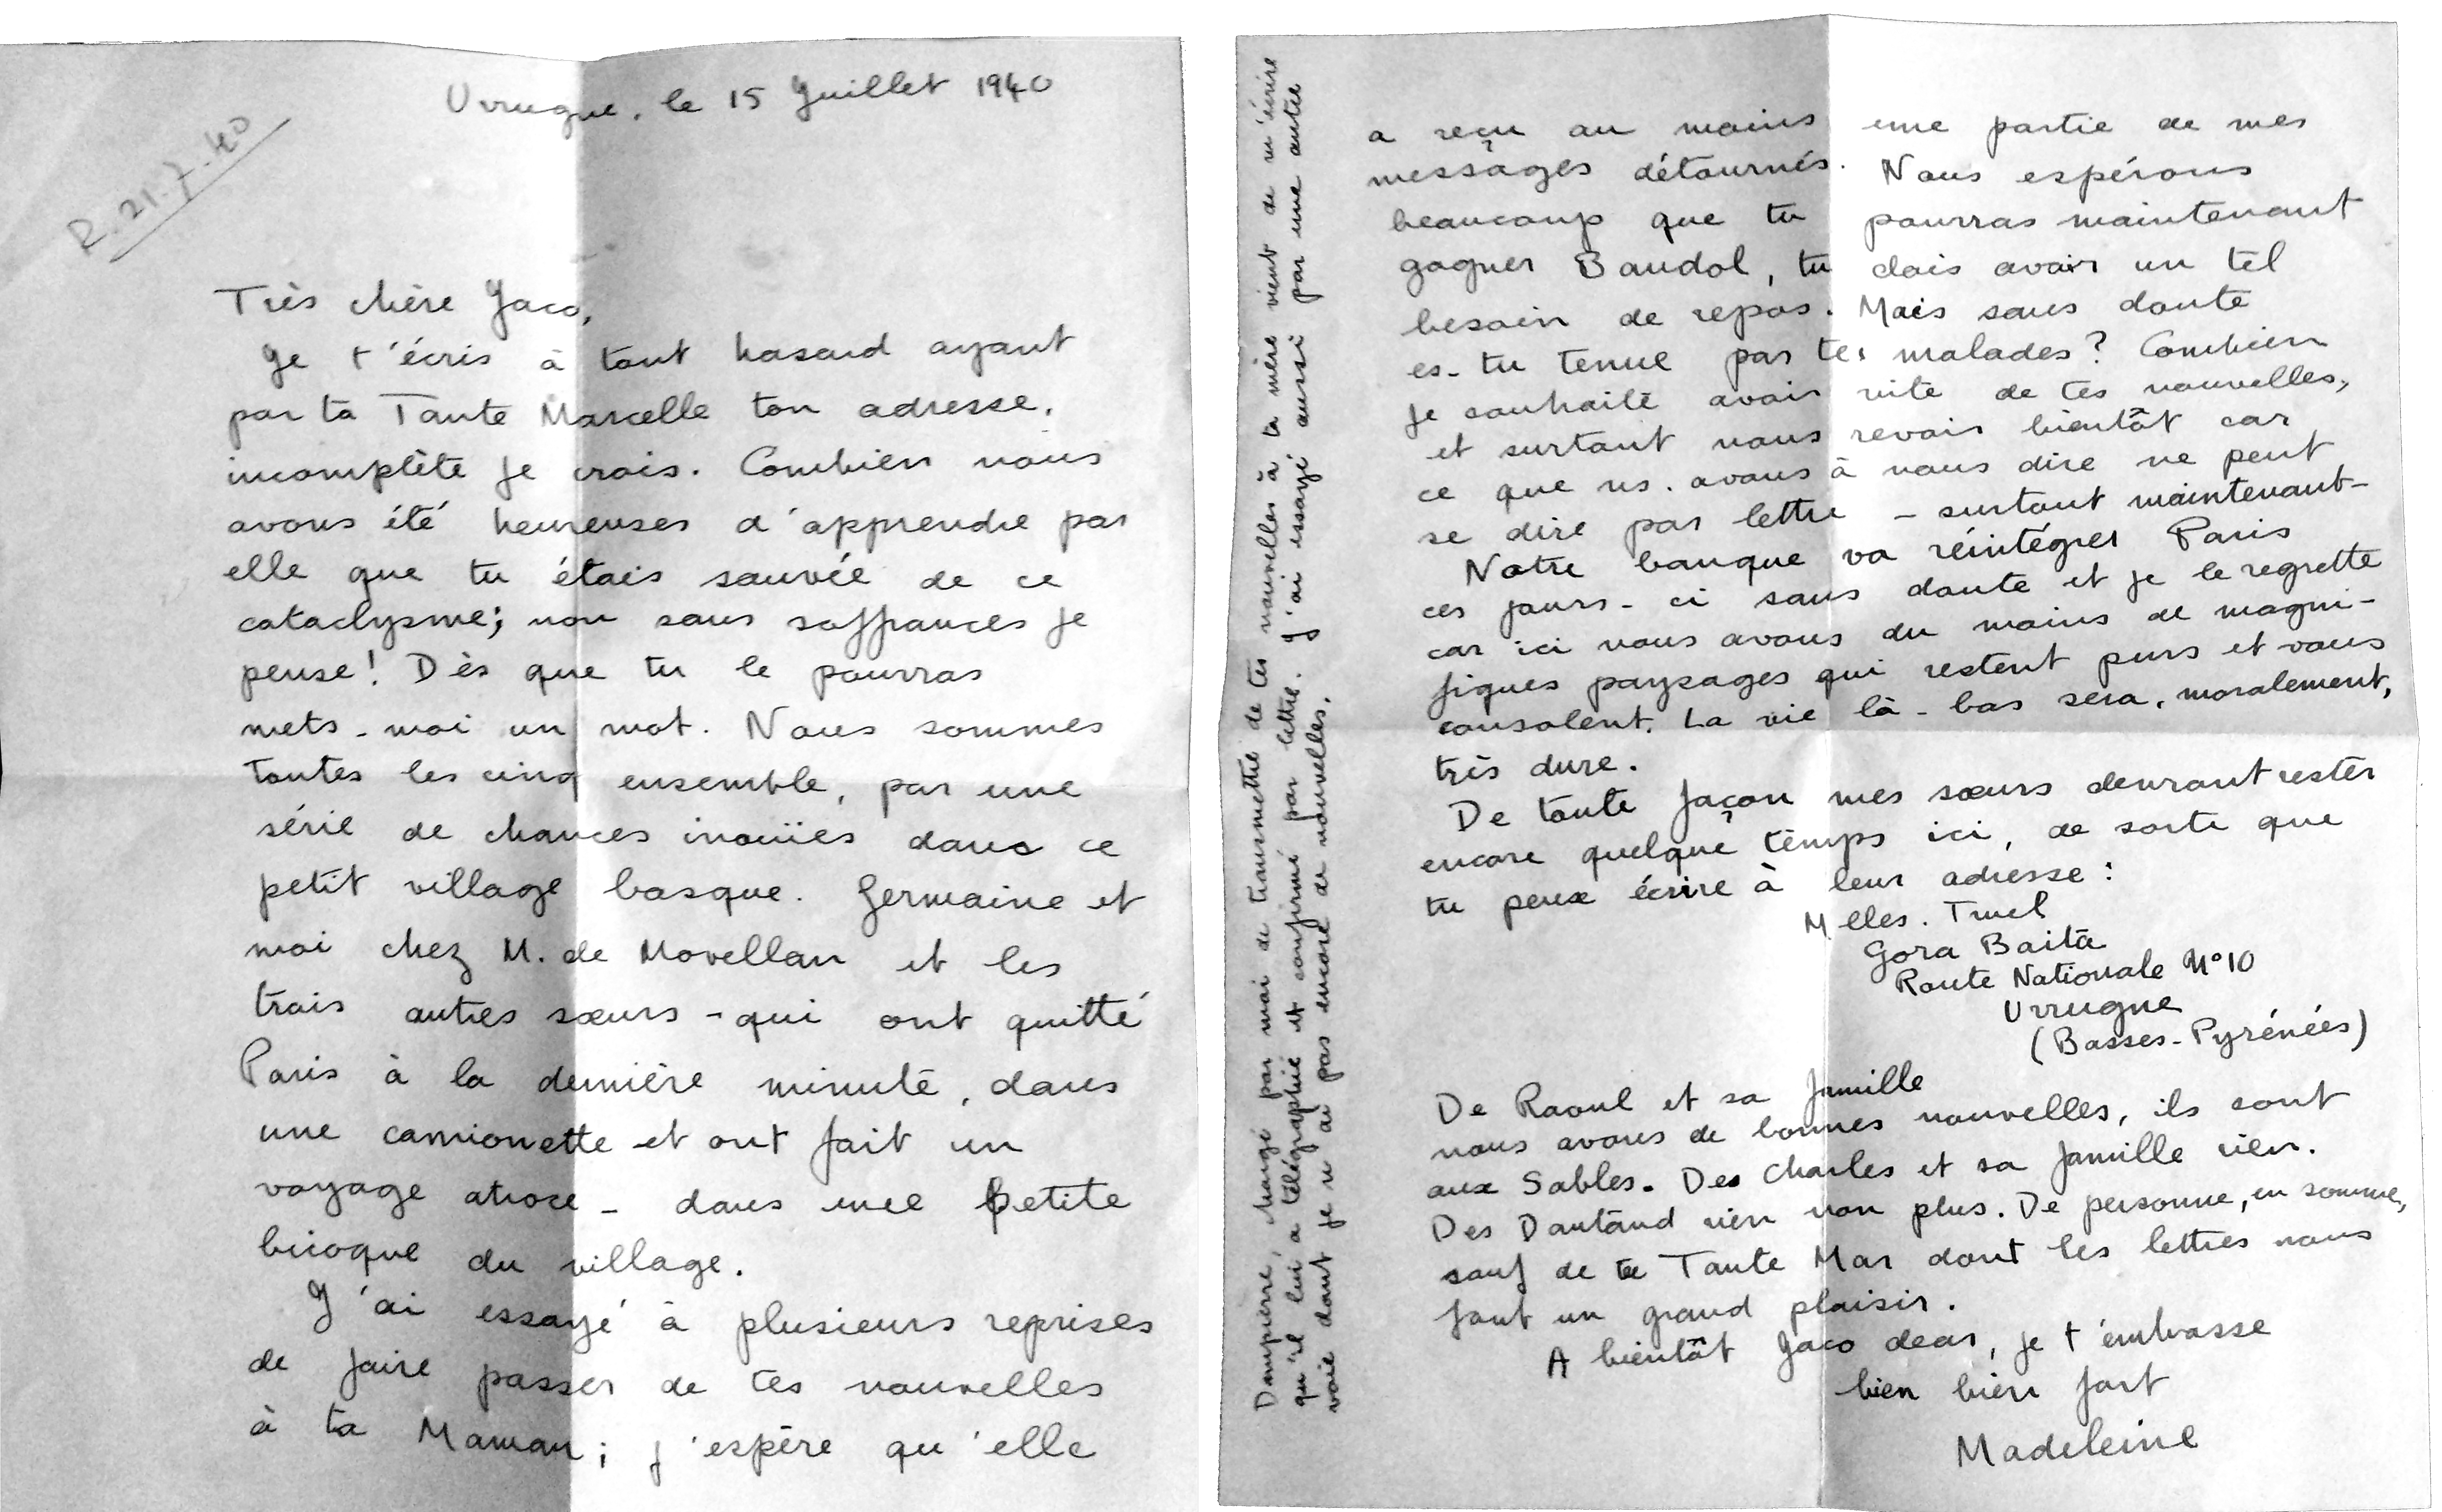 Urrugne, le 15 Juillet 1940
R. 21.7.40
Très chère Jaco,
Je t'écris à tout hasard ayant
par ta Tante Marcelle ton adresse,
incomplète je crois. Combien nous
avons été heureuses d'apprendre par
elle que tu étais sauvée de ce
cataclysme; non sans souffrances je
pense! Dès que tu le pourras
mets-moi un mot. Nous sommes
toutes les cinq ensemble, par une
série de chances inouïes dans ce
petit village basque. Germaine et
moi chez M. de Movellan et les
trois autres sœurs - qui ont quitté
Paris à la dernière minute, dans
une camionette et ont fait un
voyage atroce - dans une petite
bicoque du village.
J'ai essayé à plusieurs reprises
de faire passer de tes nouvelles
à ta Maman; j'espère qu'elle
a reçu au moins une partie de mes
messages détournés. Nous espérons
beaucoup que tu pourras maintenant
gagner Bandol, tu dois avoir un tel
besoin de repos. Mais sans doute
es-tu tenue par tes malades? Combien
je souhaite avoir vite de tes nouvelles,
et surtout nous revoir bientôt car
ce que ns. avons à nous dire ne peut
se dire par lettre - surtout maintenant -
Notre banque va réintégrer Paris
ces jours-ci sans doute et je le regrette
car ici nous avons du moins de magni-
fiques paysages qui restent purs et vous
consolent. La vie là-bas sera, moralement,
très dure.
De toute façon mes sœurs devront rester
encore quelque temps ici, de sorte que
tu peux écrire à leur adresse:
Melles. Truel
Gora Baita
Route Nationale N°10
Urrugne
(Basses-Pyrénées)
De Raoul et sa famille
nous avons de bonnes nouvelles, ils sont
aux Sables. Des Charles et sa famille rien.
Des Dautand rien non plus. De personne, en somme,
sauf de ta Tante Mar dont les lettres nous
font un grand plaisir.
A bientôt Jaco dear, je t'embrasse
bien bien fort
Madeleine
Dampierre, chargé par moi de transmettre de tes nouvelles à ta mère vient de m'écrire
qu'il lui a télégraphié et confirmé par lettre. J'ai essayé aussi par une autre
voie dont je n'ai pas encore de nouvelles.